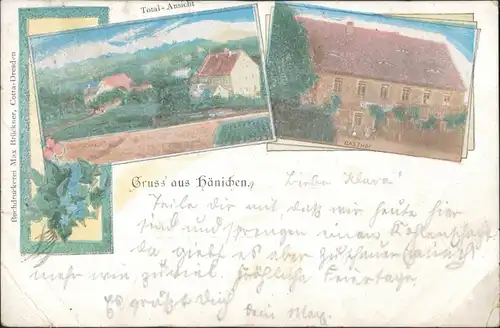 Total-Ansicht
GASTHOF
Buchdruckerei Max Brückner, Cotta-Dresden
Gruss aus Hänichen.
Liebe Klara!
Teile dir mit, daß wir heute hier
sind und sprengen einen
da giebt es aber Zuschauer
mehr wie zuviel. Fröhliche Feiertage.
Es grüßt Dich
dein Max.